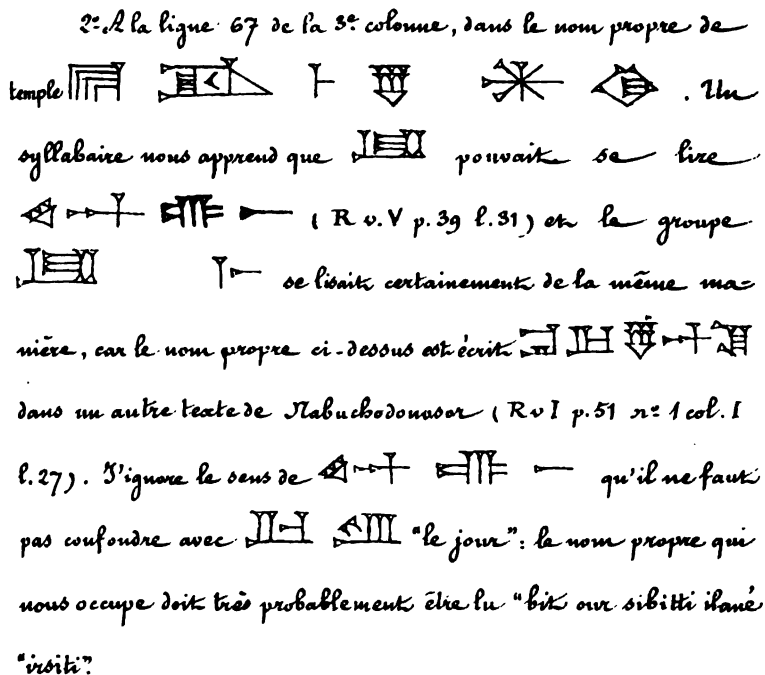 2º. A la ligne 67 de la 3e colonne, dans le nom propre de
temple . Un
syllabaire nous apprend que pouvait se lire
( R v. V p. 39 l. 31 ) et le groupe
se lisait certainement de la même ma=
nière, car le nom propre ci-dessus est écrit
dans un autre texte de Nabuchodonosor ( R v I p. 51 nº 1 col. I
l. 27 ) . J'ignore le sens de qu'il ne faut
pas confondre avec "le jour" : le nom propre qui
nous occupe doit très probablement être lu "bit our sibitti ilané
"irsiti".